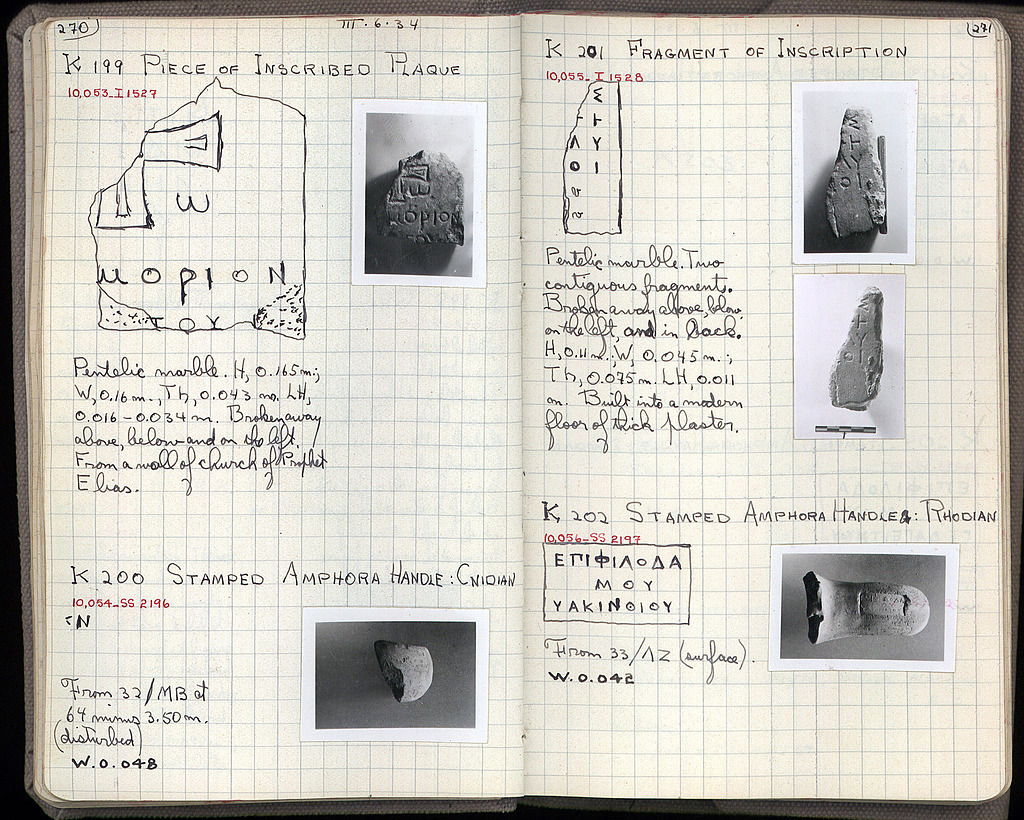 270
III·6·34
K 199 PIECE OF INSCRIBED PLAQUE
10,053_I 1527
ω
μΟΡΙΟΝ
ΤΟΥ
Pentelic marble. H, 0.165 m.;
W, 0.16 m., Th, 0.043 m. LH,
0.016–0.034 m. Broken away
above, below and on the left.
From a wall of church of Prophet
Elias.
K 200 STAMPED AMPHORA HANDLE: CNIDIAN
10,054_SS 2196
N
From 32/MB at
64 minus 3.50 m.
(disturbed)
W. 0.048
271
K 201 FRAGMENT OF INSCRIPTION
10,055_I 1528
Σ
Ι Τ
Λ Υ
Ο Ι
Pentelic marble. Two
contiguous fragments.
Broken away above, below,
on the left, and in back.
H, 0.11 m.; W, 0.045 m.;
Th, 0.075 m. LH, 0.011
m. Built into a modern
floor of thick plaster.
K 202 STAMPED AMPHORA HANDLE: RHODIAN
10,056_SS 2197
ΕΠΙΦΙΛΟΔΑ
ΜΟΥ
ΥΑΚΙΝΘΙΟΥ
From 33/ΛΖ (surface).
W. 0.042